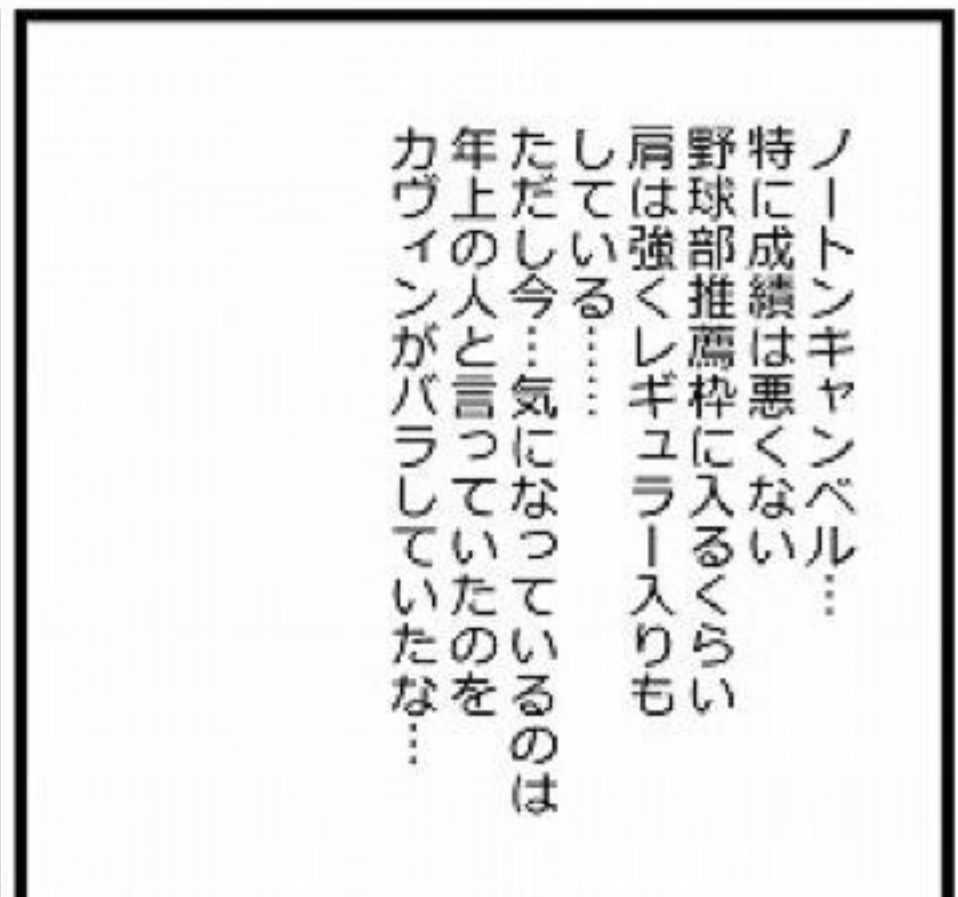 ノートンキャンベル…
特に成績は悪くない
野球部推薦枠に入るくらい
肩は強くレギュラー入りも
している……
ただし今…気になっているのは
年上の人と言っていたのを
カヴィンがバラしていたな…